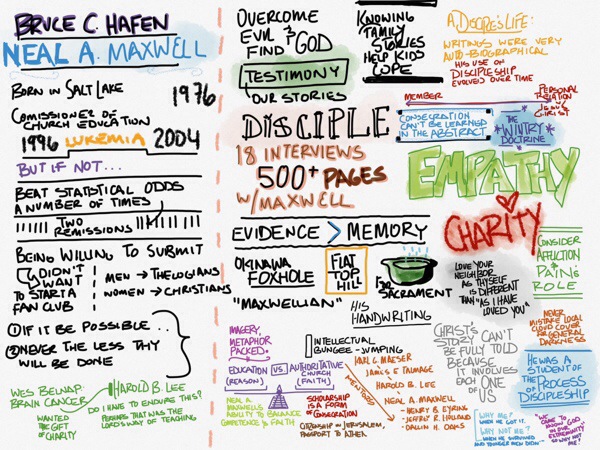 BRUCE C. HAFEN
NEAL A. MAXWELL
BORN IN SALT LAKE
1976
COMISSIONER OF
CHURCH EDUCATION
1996 LUKEMIA 2004
BUT IF NOT...
BEAT STATISTICAL ODDS
A NUMBER OF TIMES
TWO
REMISSIONS
BEING WILLING TO SUBMIT
DIDN'T
WANT
TO START A
FAN CLUB
MEN → THELOGIANS
WOMEN → CHRISTIANS
① IF IT BE POSSIBLE..
② NEVER THE LESS THY
WILL BE DONE
WES BELNAP
BRAIN CANCER
WANTED
THE GIFT
OF CHARITY
HAROLD B. LEE
DO I HAVE TO ENDURE THIS?
PERHAPS THAT WAS THE
LORD'S WAY OF TEACHING
OVERCOME
EVIL &
FIND GOD
TESTIMONY
OUR STORIES
KNOWING
FAMILY
STORIES
HELP KIDS
COPE
DISCIPLE
18 INTERVIEWS
500+ PAGES
W/MAXWELL
EVIDENCE > MEMORY
OKINAWA
FOXHOLE
FLAT
TOP
HILL
SACRAMENT
"MAXWELLIAN"
HIS
HANDWRITING
IMAGERY,
METAPHOR
PACKED.
INTELLECTUAL
BUNGEE-JUMPING
EDUCATION
(REASON)
VS
AUTHORITATIVE
CHURCH
(FAITH)
NEAL A
MAXWELLS
ABILITY TO BALANCE
COMPETENCE & FAITH
SCHOLARSHIP
IS A FORM
OF CONSECRATION
CITIZENSHIP IN JERUSALEM,
PASSPORT TO ATHEN
MENTORED
KARL G MAESER
JAMES E TALMAGE
HAROLD B. LEE
NEAL A. MAXWELL
- HENRY B EYRING
- JEFFREY R. HOLLAND
- DALLIN H. OAKS
A DISCIPLE'S LIFE:
WRITINGS WERE VERY
AUTO-BIOGRAPHICAL
HIS USE OF
DISCIPLESHIP
EVOLVED OVER TIME
MEMBER
PERSONAL
RELATION
JESUS
CHRIST
CONSECRATION
CAN'T BE LEARNED
IN THE ABSTRACT
THE
"WINTRY
DOCTRINE"
EMPATHY
CHARITY
LOVE YOUR
NEIGHBOR
AS THYSELF
IS DIFFERENT
THAN "AS I HAVE
LOVED YOU"
CONSIDER
AFFLICTION
& PAIN'S
ROLE
NEVER
MISTAKE LOCAL
CLOUD COVER
FOR GENERAL
DARKNESS
CHRIST'S
STORY CAN'T
BE FULLY TOLD
BECAUSE
IT INVOLVES
EACH ONE
OF US
HE WAS A
STUDENT OF
THE PROCESS
OF DISCIPLESHIP
WHY ME?
WHEN HE GOT IT.
WHY NOT ME?
WHEN HE SURVIVED
AND YOUNGER MEN DIDN'T
"WE
COME TO
KNOW GOD
IN OUR
EXTREMITY"
SO WHY NOT
ME!